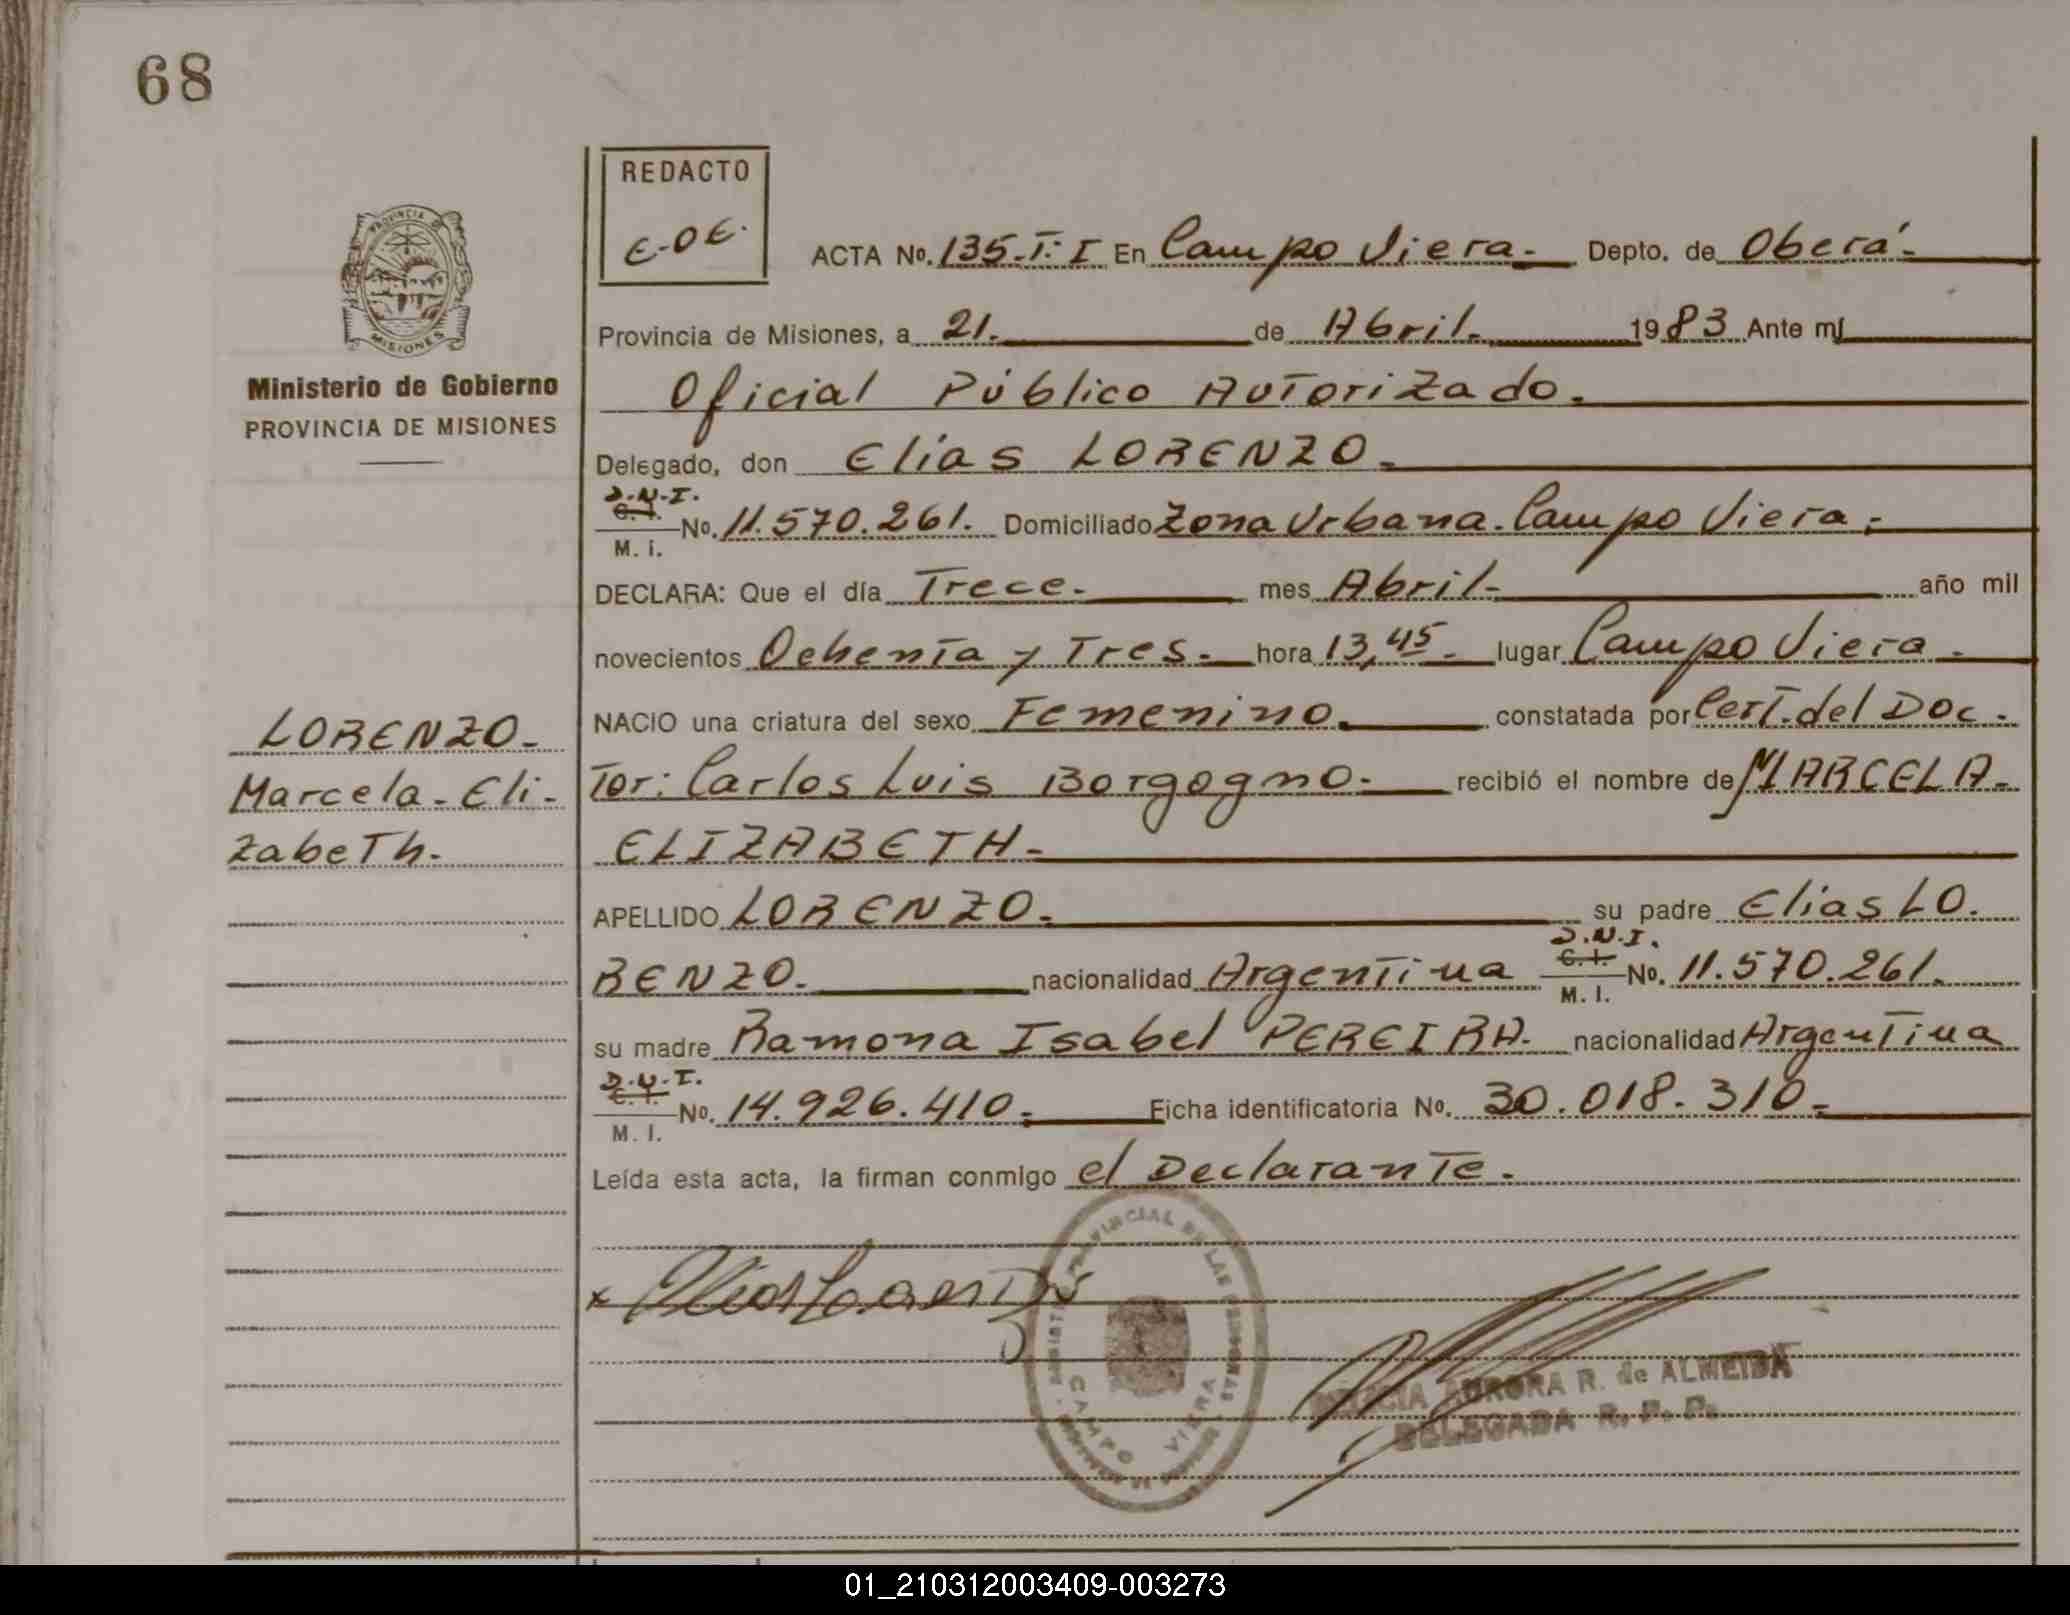 68
REDACTO
E-OE.
ACTA No. 135.T: I En Campo Viera.- Depto. de Oberá.-
Provincia de Misiones, a 21. de Abril. 1983 Ante mí
Oficial Público Autorizado.
PROVINCIA DE
MISIONES
Ministerio de Gobierno
PROVINCIA DE MISIONES
Delegado, don Elias LORENZO.
D.N.I.
C. I.
M. I.
No. 11.570.261. Domiciliado Zona Urbana. Campo Viera.-
DECLARA: Que el día Trece.- mes Abril- año mil
novecientos Ochenta y Tres.- hora 13,45.- lugar Campo Viera.-
NACIO una criatura del sexo Femenino. constatada por Cert. del Doc-
tor: Carlos Luis Borgogno.- recibió el nombre de MARCELA-
ELIZABETH.-
LORENZO.-
Marcela-Eli-
zabeth.-
APELLIDO LORENZO. su padre Elias LO.
RENZO. nacionalidad Argentina
D.N.I.
C. I.
M. I.
No. 11.570.261.
su madre Ramona Isabel PEREIRA. nacionalidad Argentina
D.N.I.
C. I.
M. I.
No. 14.926.410.- Ficha identificatoria No. 30.018.310.-
Leída esta acta, la firman conmigo el Declarante.-
x Elias Lorenzo
PROVINCIAL DE LAS PERSONAS
CAMPO VIERA
AURORA R. de ALMEIDA
DELEGADA R. P. P.
01_210312003409-003273